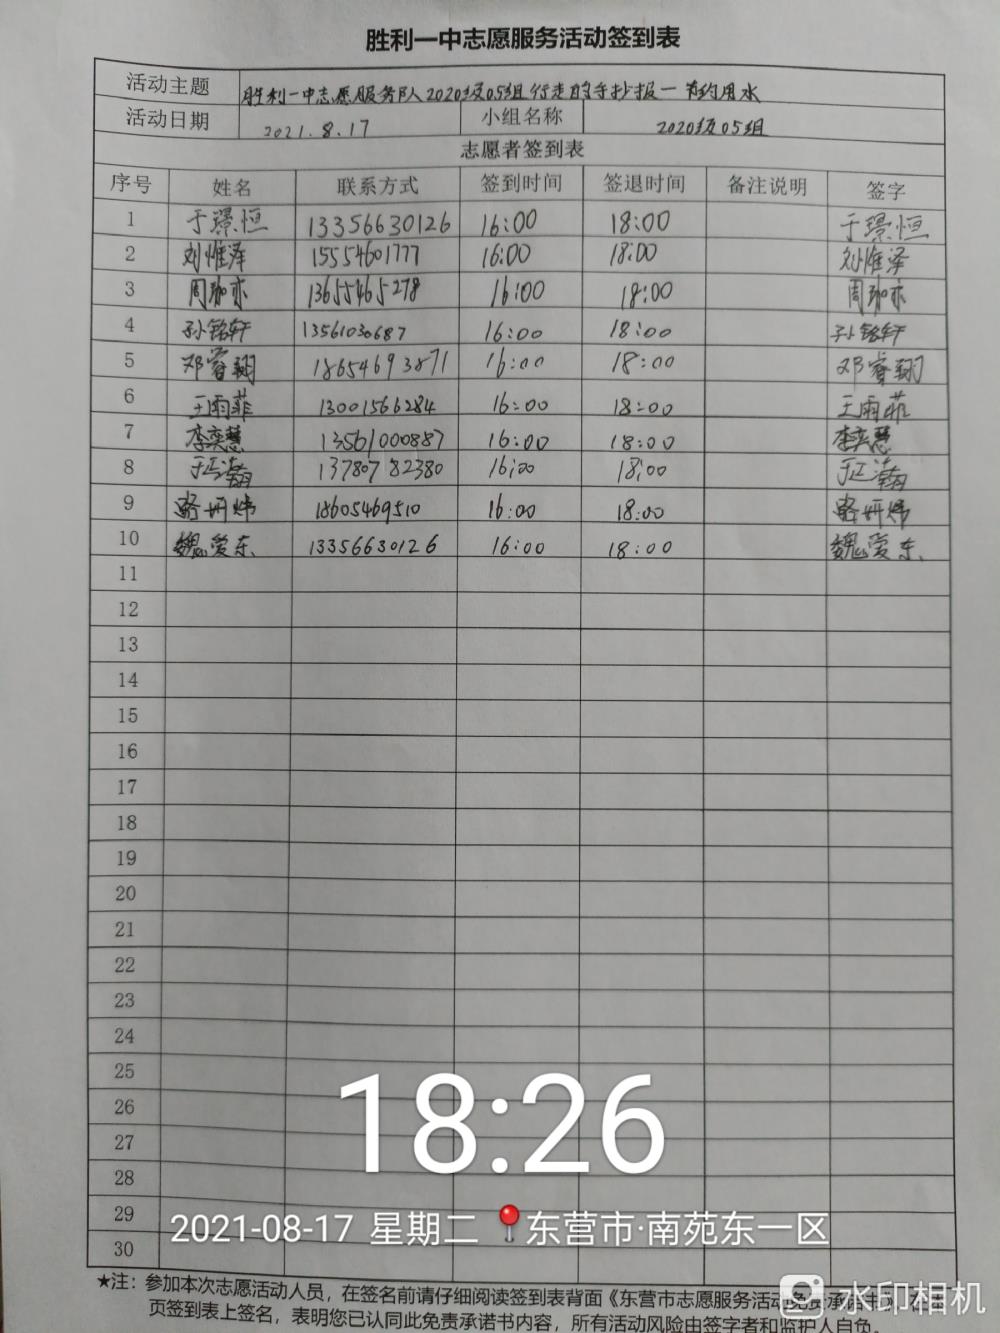 胜利一中志愿服务活动签到表
活动主题 胜利一中志愿服务队2020级05组行走的手抄报一节约用水
活动日期 2021.8.17 小组名称 2020级05组
志愿者签到表
序号 姓名 联系方式 签到时间 签退时间 备注说明 签字
1 于璟恒 13356630126 16:00 18:00 于璟恒
2 刘惟泽 15554601777 16:00 18:00 刘惟泽
3 周珈亦 13655465278 16:00 18:00 周珈亦
4 孙铭轩 13561030687 16:00 18:00 孙铭轩
5 邓睿翔 18654693871 16:00 18:00 邓睿翔
6 王雨菲 13001566284 16:00 18:00 王雨菲
7 李奕慧 13561000887 16:00 18:00 李奕慧
8 13780782380 16:00 18:00
9 骆妍炜 18605469510 16:00 18:00 骆妍炜
10 魏爱东 13356630126 16:00 18:00 魏爱东
11
12
13
14
15
16
17
18
19
20
21
22
23
24
25
26
27
28
29
30
18:26
2021-08-17 星期二 东营市·南苑东一区
★注：参加本次志愿活动人员，在签名前请仔细阅读签到表背面《东营市志愿服务活动免责承诺书》，在
页签到表上签名，表明您已认同此免责承诺书内容，所有活动风险由签字者和监护人自负。
水印相机